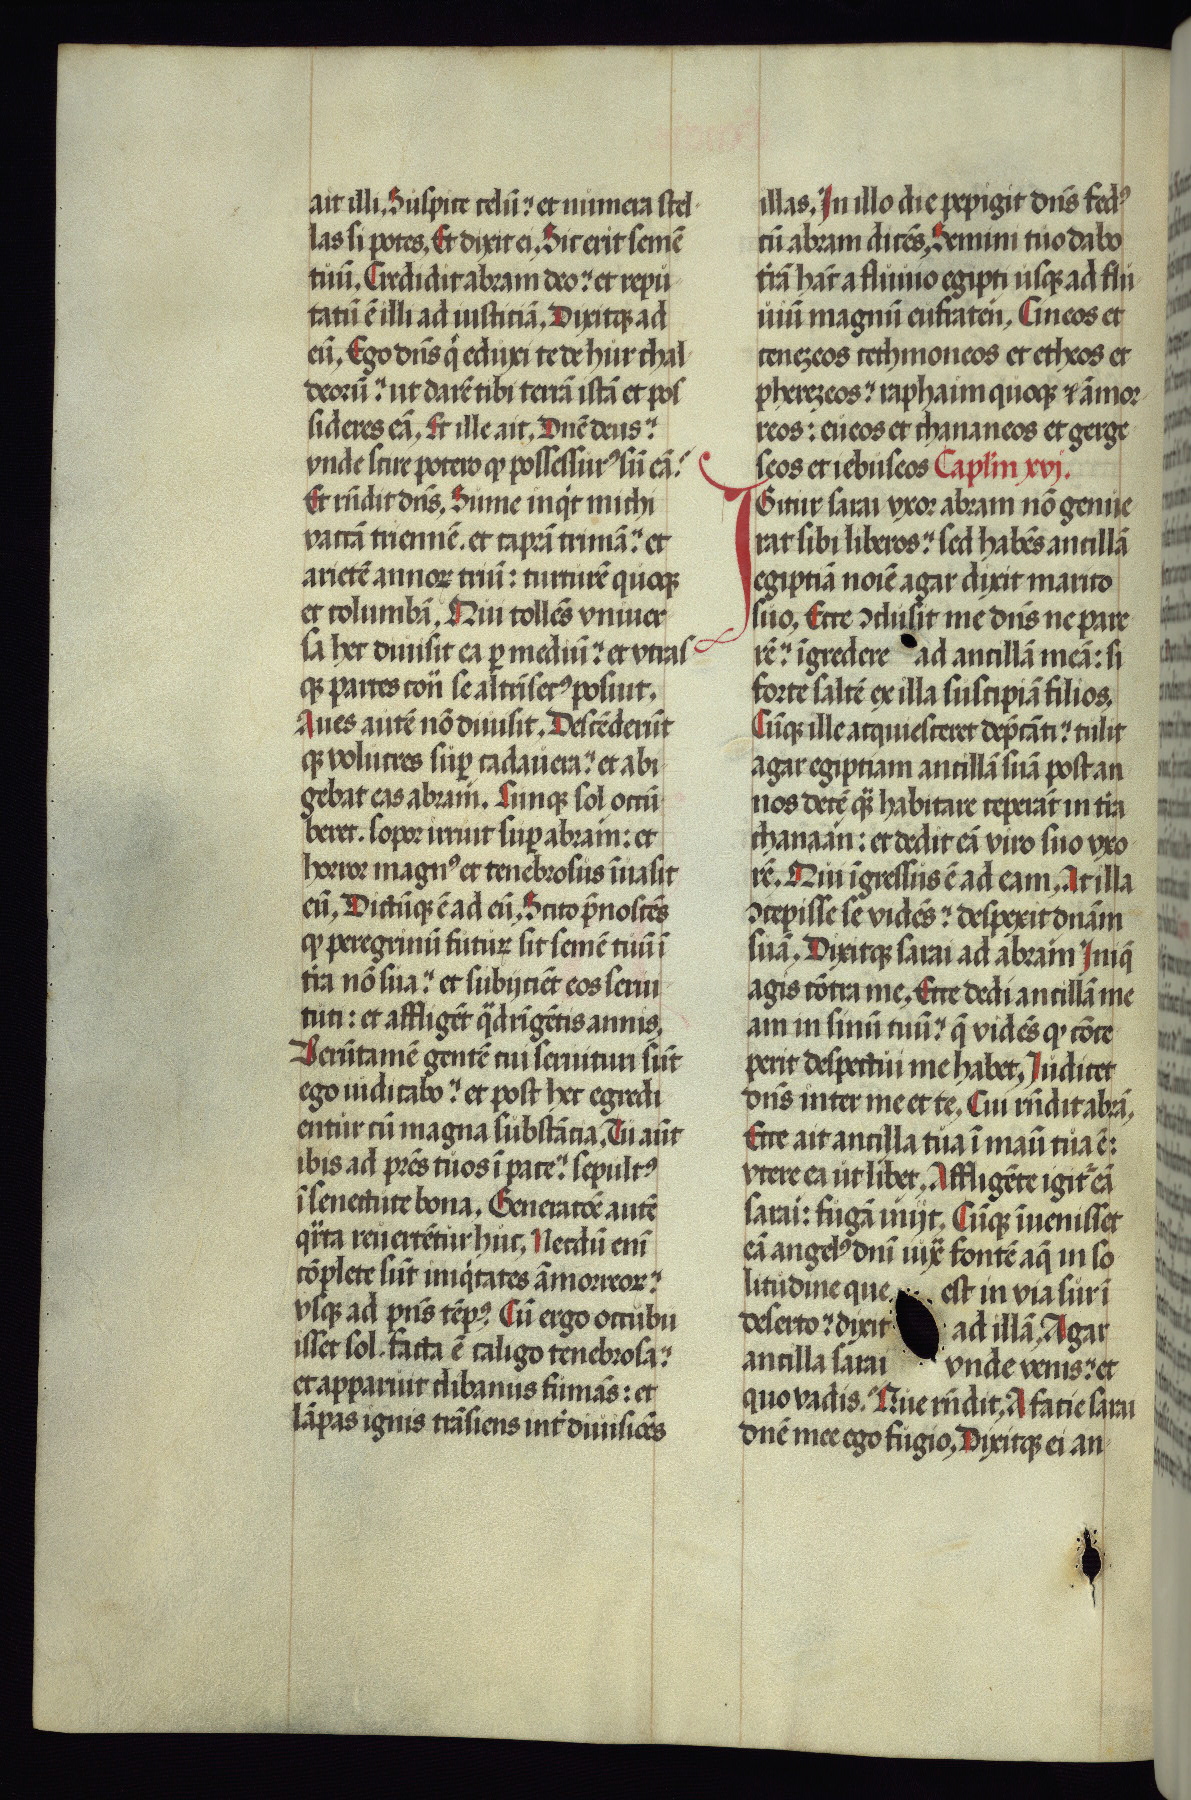 ait illi, Suspice celū? et numera stel
las si potes, Et dixit ei, Sic erit semē
tuū, Credidit abram deo? et repu
tatū ē illi ad iusticiā, Dixitqꝫ ad
eū, Ego dn̄s q̇ eduxi te de hur chal
deorū? ut darē tibi terrā istā et pos
sideres eā, Et ille ait, Dn̄e deus?
vnde scire potero ꝙ possessurꝰ sū eā?
Et rn̄dit dn̄s, Sume inq̇t michi
vaccā triennē. et caprā trimā? et
arietē annoꝝ triū: turturē quoqꝫ
et columbā, Qui tollēs vniuer
sa hec diuisit ea ꝑ mediū? et vtras
qꝫ partes cont̄ se altrīsecꝰ posuit,
Aues autē nō diuisit, Descēderūt
qꝫ volucres suꝑ cadauera? et abi
gebat eas abram, Cumqꝫ sol occū
beret. sopor irruit suꝑ abram: et
horror magnꝰ et tenebrosus īuasit
eū, Dictūqꝫ ē ad eū, Scito p̄noscēs
ꝙ peregrinū futuꝝ sit semē tuū ī
tr̄a nō sua? et subijciēt eos serui
tuti: et affligēt q̈drīgētis annis,
Verūtamē gentē cui seruituri sūt
ego iudicabo? et post hec egredi
entur cū magna substācia, Tu aūt
ibis ad pr̄es tuos ī pace? sepultꝰ
ī senectute bona, Generatōe autē
q̈rta reuertētur huc, Necdū enī
cōplete sūt iniq̇tates āmorreoꝝ?
vsqꝫ ad pn̄s tēpꝰ, Cū ergo occubu
isset sol. facta ē caligo tenebrosa?
et apparuit clibanus fumās: et
lāpas ignis trāsiens int̄ diuisiōes
illas, In illo die pepigit dn̄s fedꝰ
cū abram dicēs, Semini tuo dabo
tr̄ā hāc a fluuio egipti usqꝫ ad flu
uiū magnū eufraten, Cineos et
cenezeos cethmoneos et etheos et
pherezeos? raphaim quoqꝫ ⁊ āmor
reos: eueos et chananeos et gerge
seos et iebuseos Caplm̄ xvj.
IGitur sarai vxor abram nō genue
rat sibi liberos? sed habēs ancillā
egiptiā noīe agar dixit marito
suo, Ecce ↄclusit me dn̄s ne pare
rē? īgredere ad ancillā meā: si
forte saltē ex illa suscipiā filios,
Cūqꝫ ille acquiesceret dep̄cāti? tulit
agar egiptiam ancillā suā post an
nos decē q̈ habitare ceperāt in tr̄a
chanaan: et dedit eā viro suo vxo
rē, Qui īgressus ē ad eam, At illa
ↄcepisse se vidēs? despexit dn̄am
suā, Dixitqꝫ sarai ad abram Iniq̄
agis cōtra me, Ecce dedi ancillā me
am in sinū tuū? q̄ vidēs ꝙ cōce
perit despectui me habet, Iudicet
dn̄s inter me et te, Cui rn̄dit abrā,
Ecce ait ancilla tua ī manū tua ē:
vtere ea ut libet, Affligēte igit̄ eā
sarai: fugā inijt, Cūqꝫ īuenisset
eā angelꝰ dn̄i iux̄ fontē aq̄ in so
litudine que est in via sur ī
deserto? dixit ad illā, Agar
ancilla sarai vnde venis? et
quo vadis, Que rn̄dit, A facie sarai
dn̄e mee ego fugio, Dixitqꝫ ei an